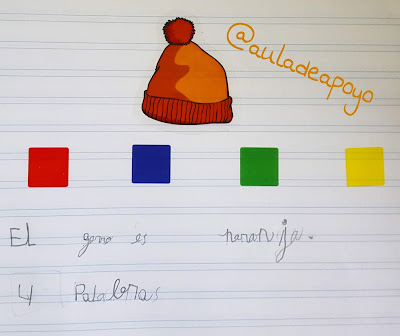 @auladeapoyo
El gorro es naranja.
4 Palabras